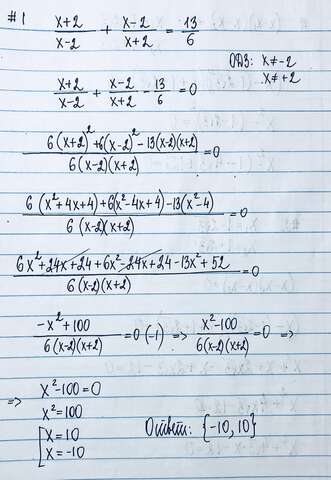 #1 (x+2)/(x-2) + (x-2)/(x+2) = 13/6
ОДЗ: x≠-2
x≠+2
(x+2)/(x-2) + (x-2)/(x+2) - 13/6 = 0
(6(x+2)²+6(x-2)²-13(x-2)(x+2))/(6(x-2)(x+2)) = 0
(6(x²+4x+4)+6(x²-4x+4)-13(x²-4))/(6(x-2)(x+2)) = 0
(6x²+24x+24+6x²-24x+24-13x²+52)/(6(x-2)(x+2)) = 0
(-x²+100)/(6(x-2)(x+2)) = 0 (-1) => (x²-100)/(6(x-2)(x+2)) = 0 =>
=> x²-100=0
x²=100
[x=10
x=-10
Ответ: {-10, 10}